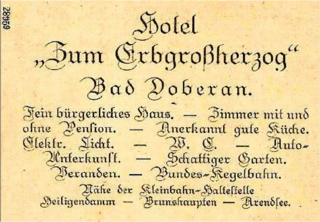 28969
Hotel
„Zum Erbgroßherzog“
Bad Doberan.
Fein bürgerliches Haus. — Zimmer mit und
ohne Pension. — Anerkannt gute Küche.
Elektr. Licht. — W. C. — Auto-
Unterkunft. — Schattiger Garten.
Veranden. — Bundes-Kegelbahn.
Nähe der Kleinbahn-Haltestelle
Heiligendamm — Brunshaupten — Arendsee.